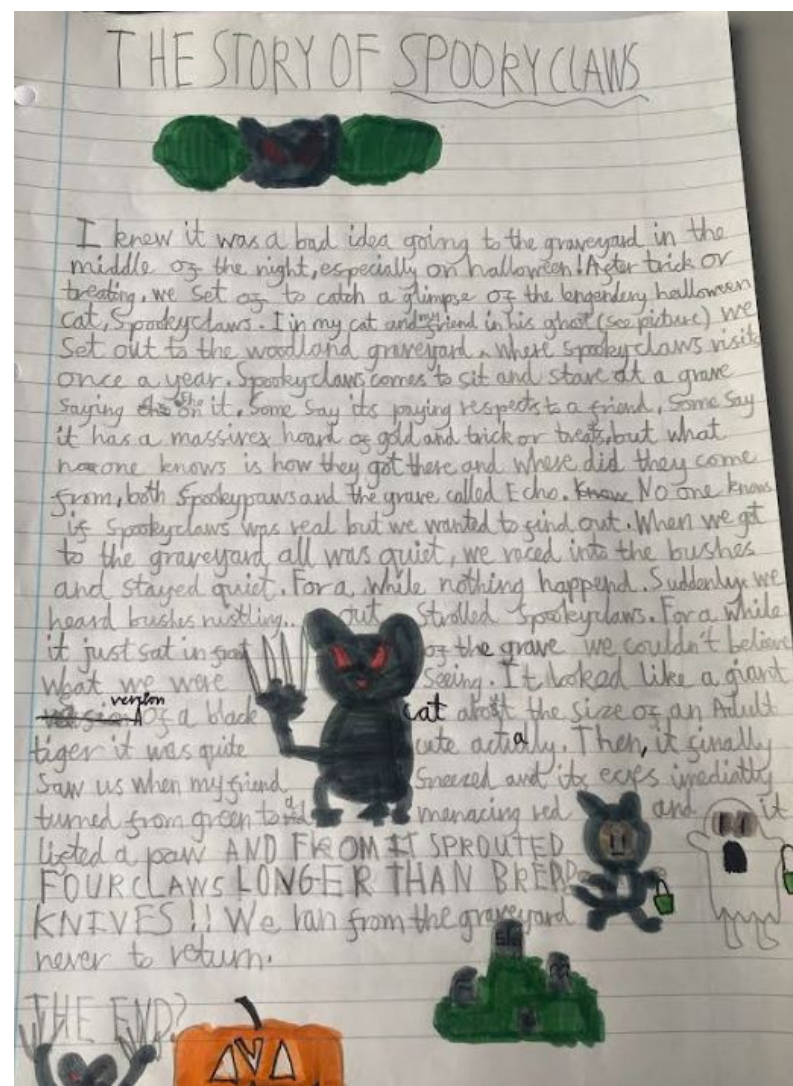 THE STORY OF SPOOKYCLAWS
I knew it was a bad idea going to the graveyard in the
middle of the night, especially on halloween! After trick or
treating, we set of to catch a glimpse of the lengendery halloween
cat, Spookyclaws. I in my cat and my friend in his ghost (see picture) we
set out to the woodland graveyard, where spookyclaws visits
once a year. Spookyclaws comes to sit and stare at a grave
saying on it. Some say its paying respects to a friend, Some say
it has a massive hoard of gold and trick or treats, but what
no one knows is how they got there and where did they come
from, both Spookypaws and the grave called Echo. No one knows
if Spookyclaws was real but we wanted to find out. When we got
to the graveyard all was quiet, we raced into the bushes
and stayed quiet. For a while nothing happend. Suddenly we
heard bushes rustling.. out strolled Spookyclaws. For a while
it just sat in front of the grave we couldn't believe
what we were seeing. It looked like a giant
version of a black cat about the size of an Adult
tiger it was quite cute actialy. Then, it finally
saw us when my friend sneezed and its eyes imediatly
turned from green to a menacing red and it
lifted a paw AND FROM IT SPROUTED
FOUR CLAWS LONGER THAN BREAD
KNIVES!! We ran from the graveyard
never to return.
THE END?